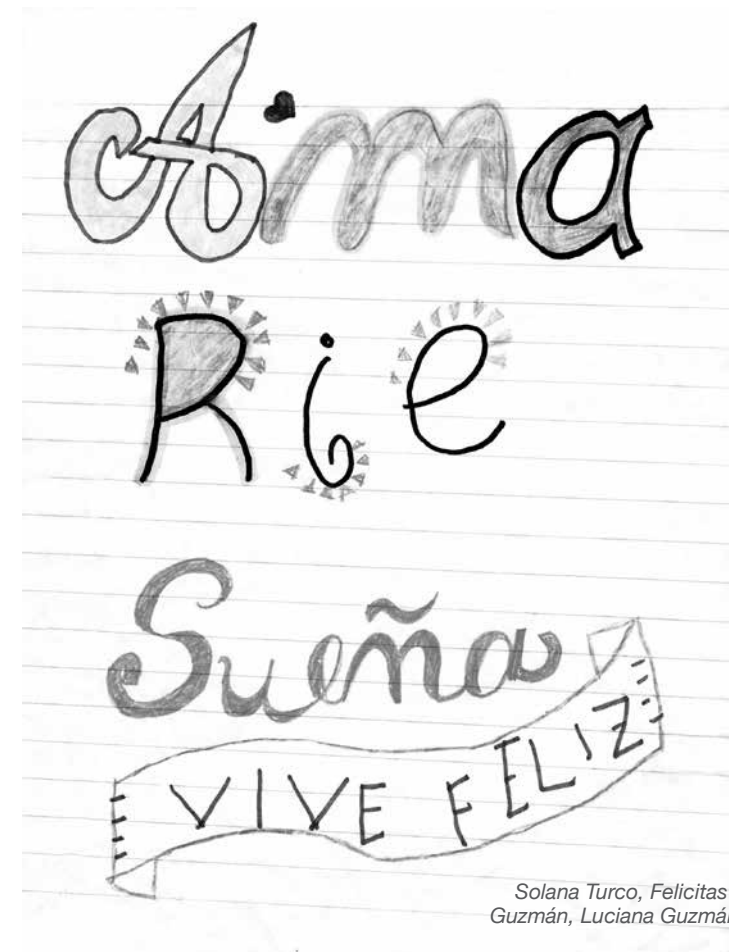 Ama
Rie
Sueña
VIVE FELIZ
Solana Turco, Felicitas
Guzmán, Luciana Guzmán